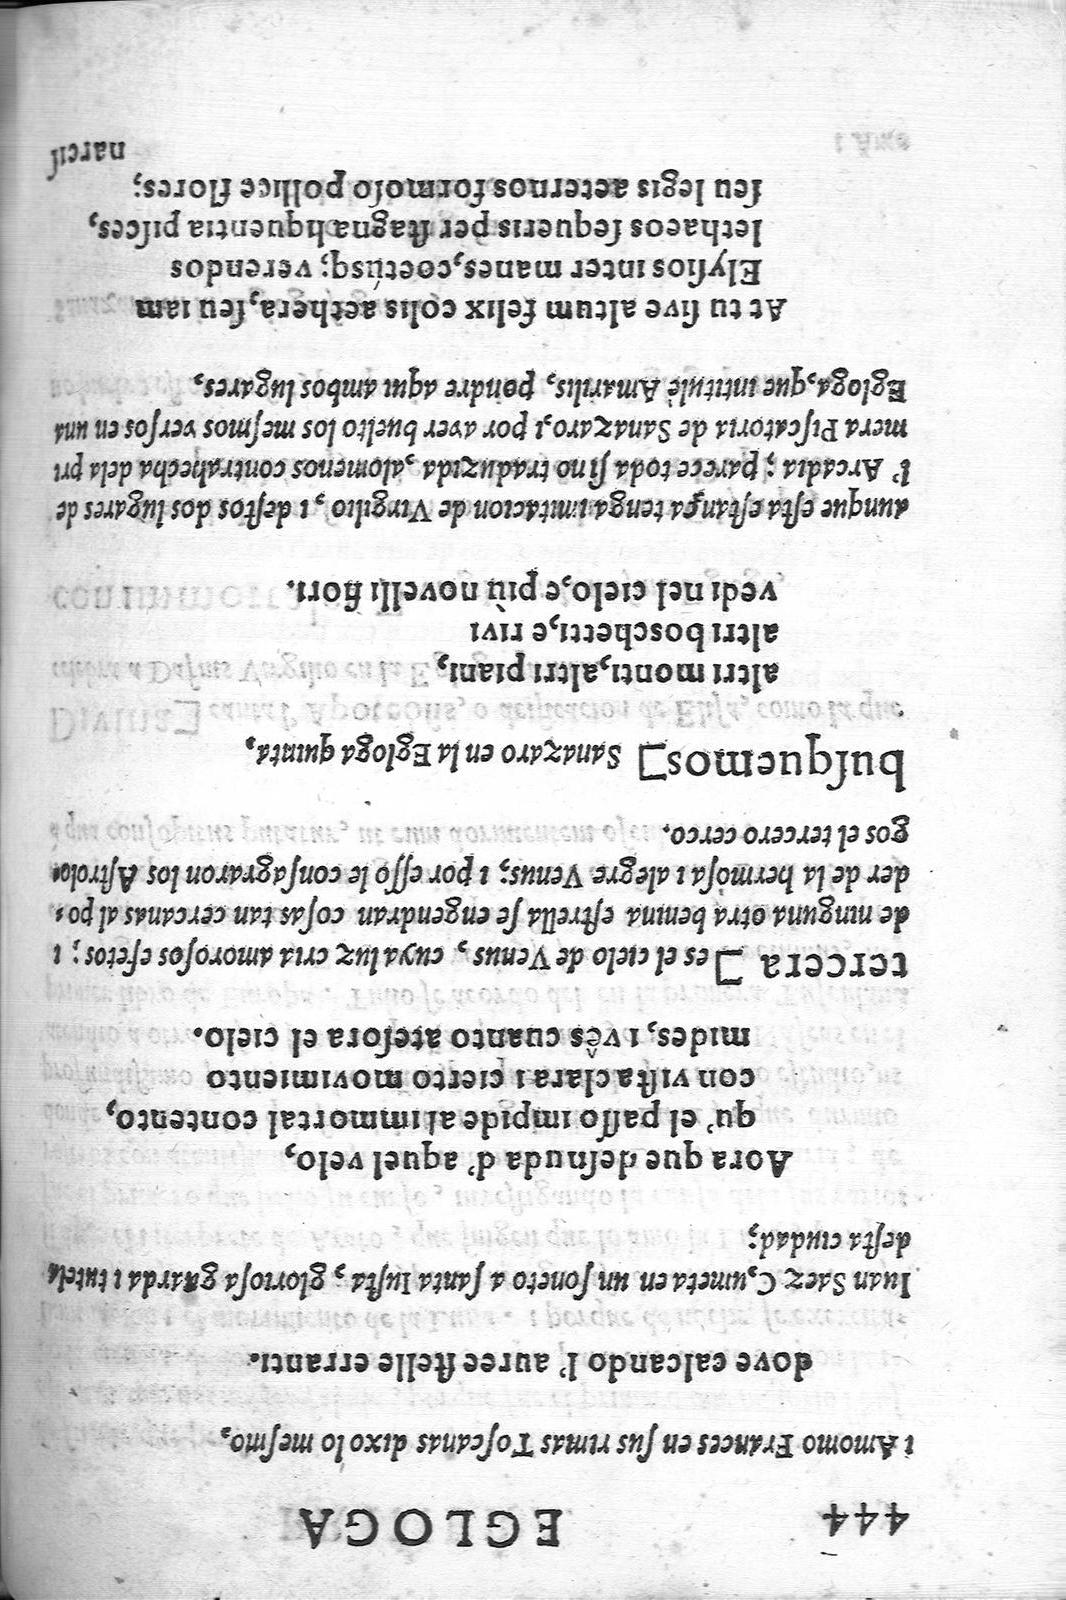 444 EGLOGA
i Amomo Frances en ſus rimas Toſcanas dixo lo meſmo,
dove calcando l' auree ſtelle erranti.
Iuan Saez Cumeta en un ſoneto a ſanta Iuſta, glorioſa guarda i tutela
deſta ciudad;
Aora que deſnuda d' aquel velo,
qu' el paſſo impide al immortal contento,
con viſta clara i cierto movimiento
mides, i vês cuanto ateſora el cielo.
tercera] es el cielo de Venus, cuya luz cria amoroſos efetos; i
de ninguna otra benina eſtrella ſe engendran coſas tan cercanas al po-
der de la hermoſa i alegre Venus; i por eſſo le conſagraron los Aſtrolo-
gos el tercero cerco.
buſquemos] Sanazaro en la Egloga quinta,
altri monti, altri piani,
altri boschetti, e rivi
vedi nel cielo, e più novelli fiori.
aunque eſta eſtança tenga imitacion de Virgilio, i deſtos dos lugares de
l' Arcadia; parece toda ſino traduzida, alomenos contrahecha dela pri
mera Piſcatoria de Sanazaro, i por aver buelto los meſmos verſos en una
Egloga, que intitulè Amarilis, pondre aqui ambos lugares,
At tu ſive altum felix colis aethera, ſeu iam
Elyſios inter manes, coetúsq; verendos
lethaeos ſequeris per ſtagna liquentia piſces,
ſeu legis aeternos formoſo pollice flores;
narciſ